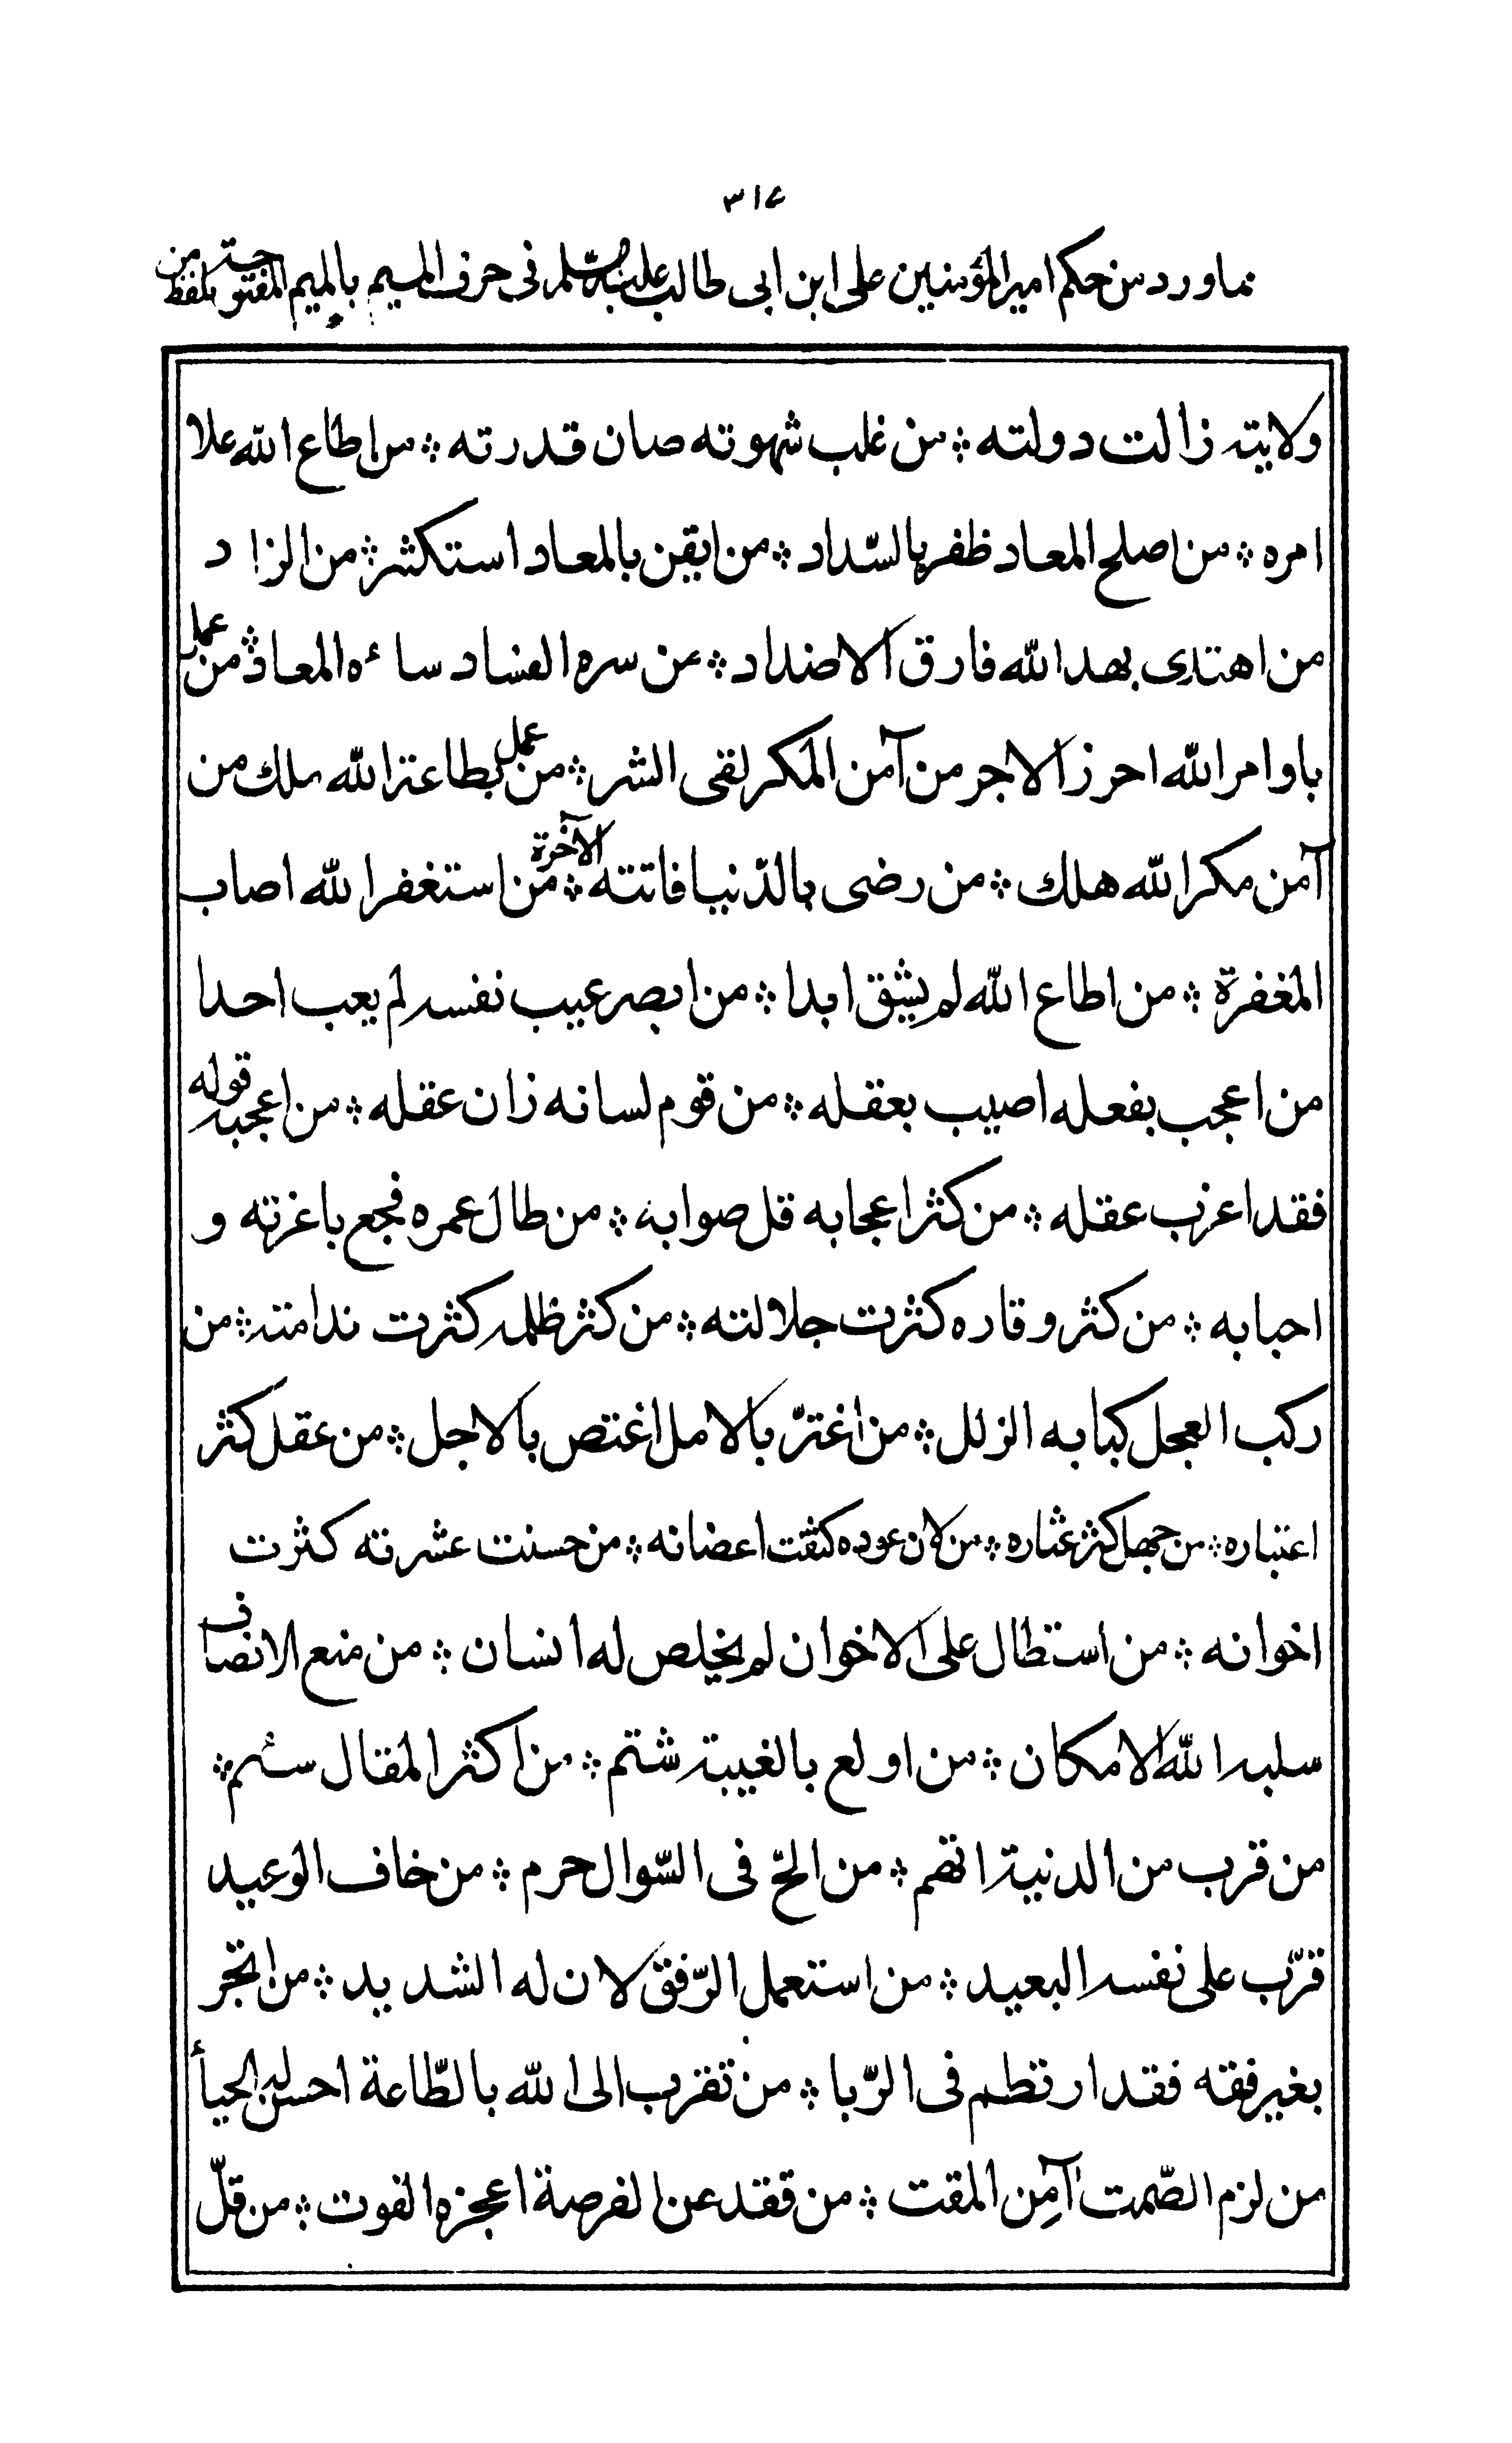 ٣١٤
مماورد من حكم اميرالمؤمنين على ابن ابى طالب عليه السّلم فى حرف الميم بالميم المفتوحة بلفظ من
ولايته زالت دولته ⁘ من غلب شهوته صان قدرته ⁘ من اطاع الله علا
امره ⁘ من اصلح المعاد ظفر بالسّداد ⁘ من ايقن بالمعاد استكثر ⁘ من الزاد
من اهتدى بهدا الله فارق الاضداد ⁘ من سره الفساد ساءه المعاد ⁘ من عمل
باوامر الله احرز الاجر من آمن المكر لقى الشر ⁘ من عمل بطاعة الله ملك من
آمن مكر الله هلك ⁘ من رضى بالدّنيا فاتته الآخرة ⁘ من استغفر الله اصاب
المغفرة ⁘ من اطاع الله لم يشق ابدا ⁘ من ابصر عيب نفسه لم يعب احدا
من اعجب بفعله اصيب بعقله ⁘ من قوم لسانه زان عقله ⁘ من اعجبه قوله
فقد اعزب عقله ⁘ من كثر اعجابه قل صوابه ⁘ من طال عمره فجع باغرته و
احبابه ⁘ من كثر وقاره كثرت جلالته ⁘ من كثر ظلمه كثرت ندامته ⁘ من
ركب العجل كبا به الزلل ⁘ من اغترّ بالامل اغتص بالاجل ⁘ من عقل كثر
اعتباره ⁘ من جهل كثر عثاره ⁘ من لان عوده كثفت اعضانه ⁘ من حسنت عشرته كثرت
اخوانه ⁘ من استطال على الاخوان لم يخلص له انسان ⁘ من منع الانصاف
سلبه الله الامكان ⁘ من اولع بالغيبة شتم ⁘ من اكثر المقال سئم ⁘
من قرب من الدنية اتهم ⁘ من الحّ فى السّوال حرم ⁘ من خاف الوعيد
قرّب على نفسه البعيد ⁘ من استعمل الرّفق لان له الشديد ⁘ من اتجر
بغير فقه فقد ارتطم فى الرّبا ⁘ من تقرب الى الله بالطّاعة احسن له الحيأ
من لزم الصّمت آمن المقت ⁘ من قعد عن الفرصة اعجزه الفوت ⁘ من قلّ